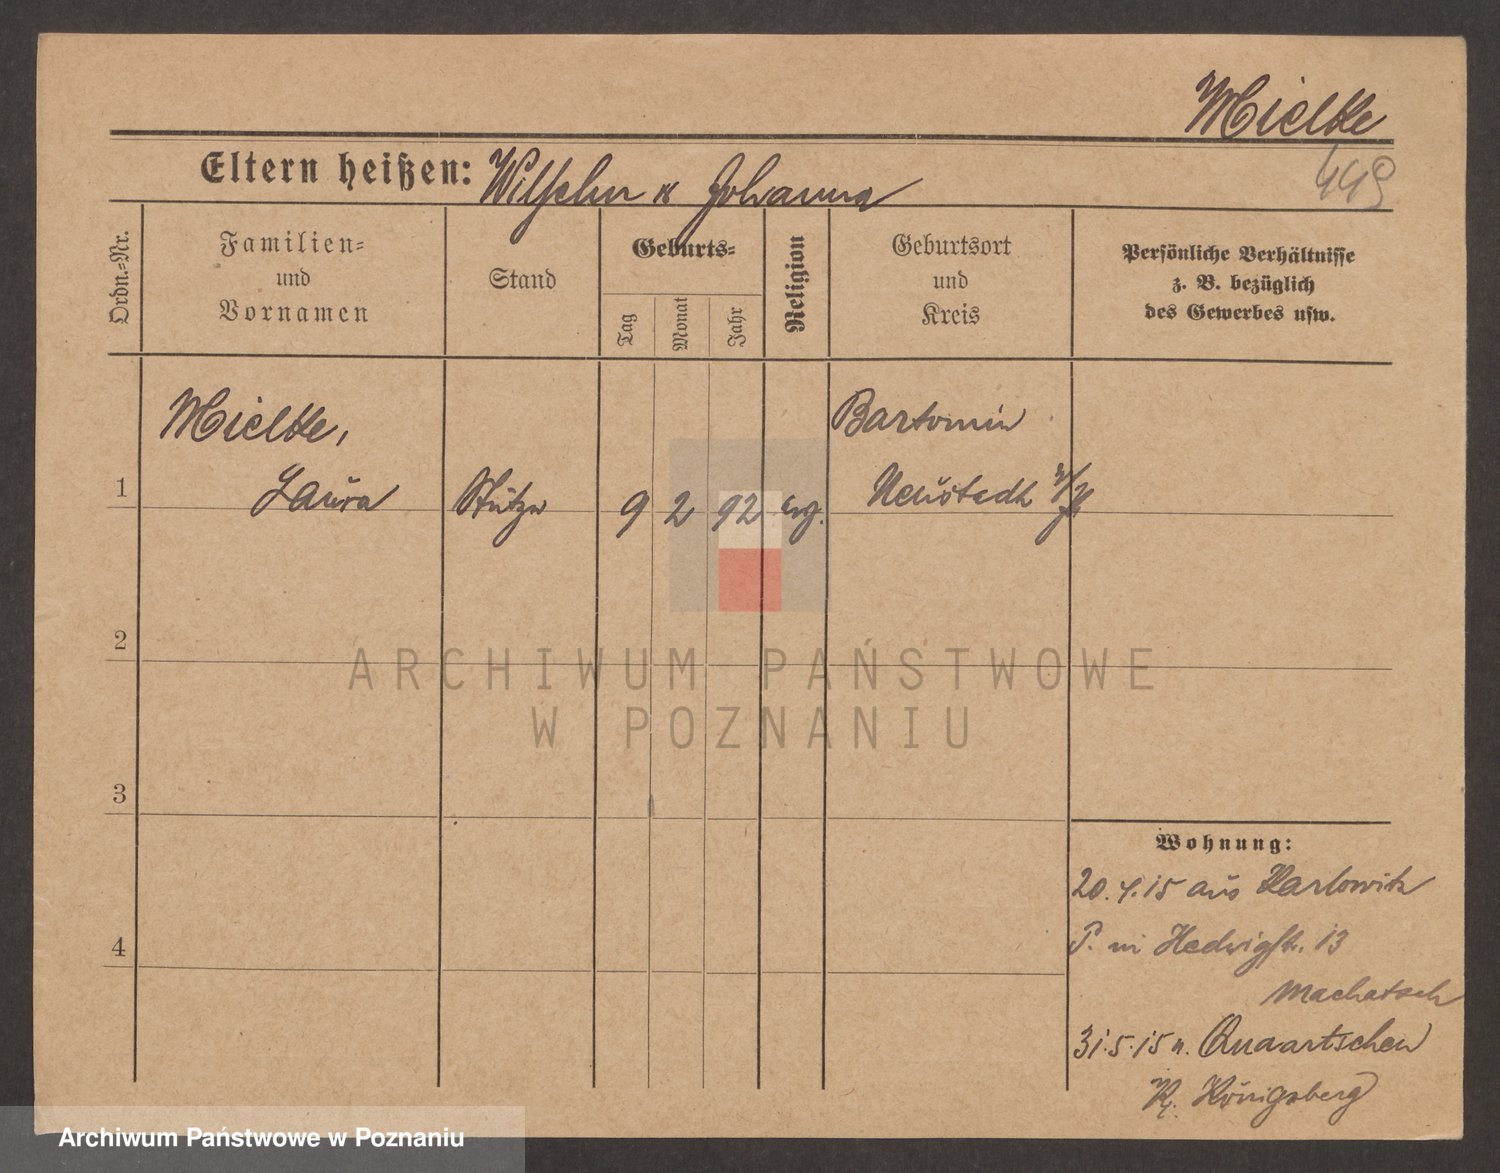 Mielke
449
Eltern heißen: Wilhelm u Johanna
Ordn.=Nr.
Familien=
und
Vornamen
Stand
Geburts=
Tag
Monat
Jahr
Religion
Geburtsort
und
Kreis
Persönliche Verhältnisse
z. B. bezüglich
des Gewerbes usw.
Mielke,
Bartomin
1 Laura Stütze 9 2 92 evg. Neustadt
2
3
4
Wohnung:
20.4.15 aus Karlowitz
P. in Hedwigstr. 13
Machatsch
31.5.15 n. Quaartschen
Kr. Königsberg
ARCHIWUM PAŃSTWOWE
W POZNANIU
Archiwum Państwowe w Poznaniu